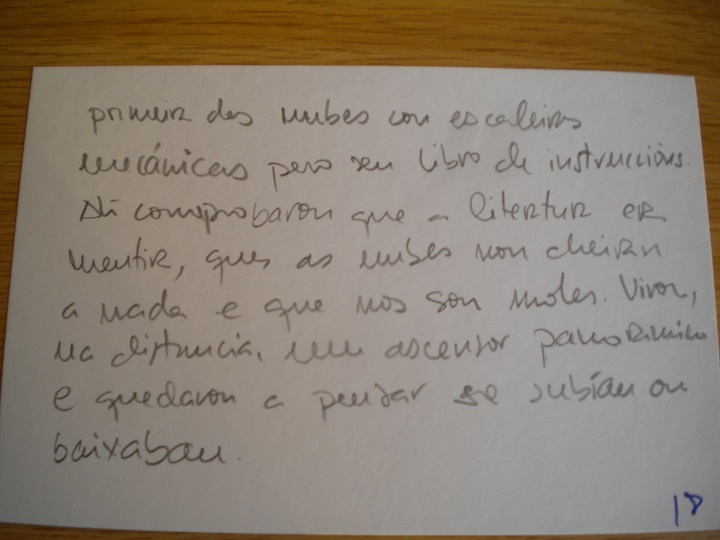 primeira das nubes con escaleiras
mecánicas pero sen libro de instruccións.
Alí comprobaron que a literatura era
mentira, que as nubes non cheiran
a nada e que nos son moles. Viron,
na distancia, un ascensor panorámico
e quedaron a pensar se subían ou
baixaban.
18